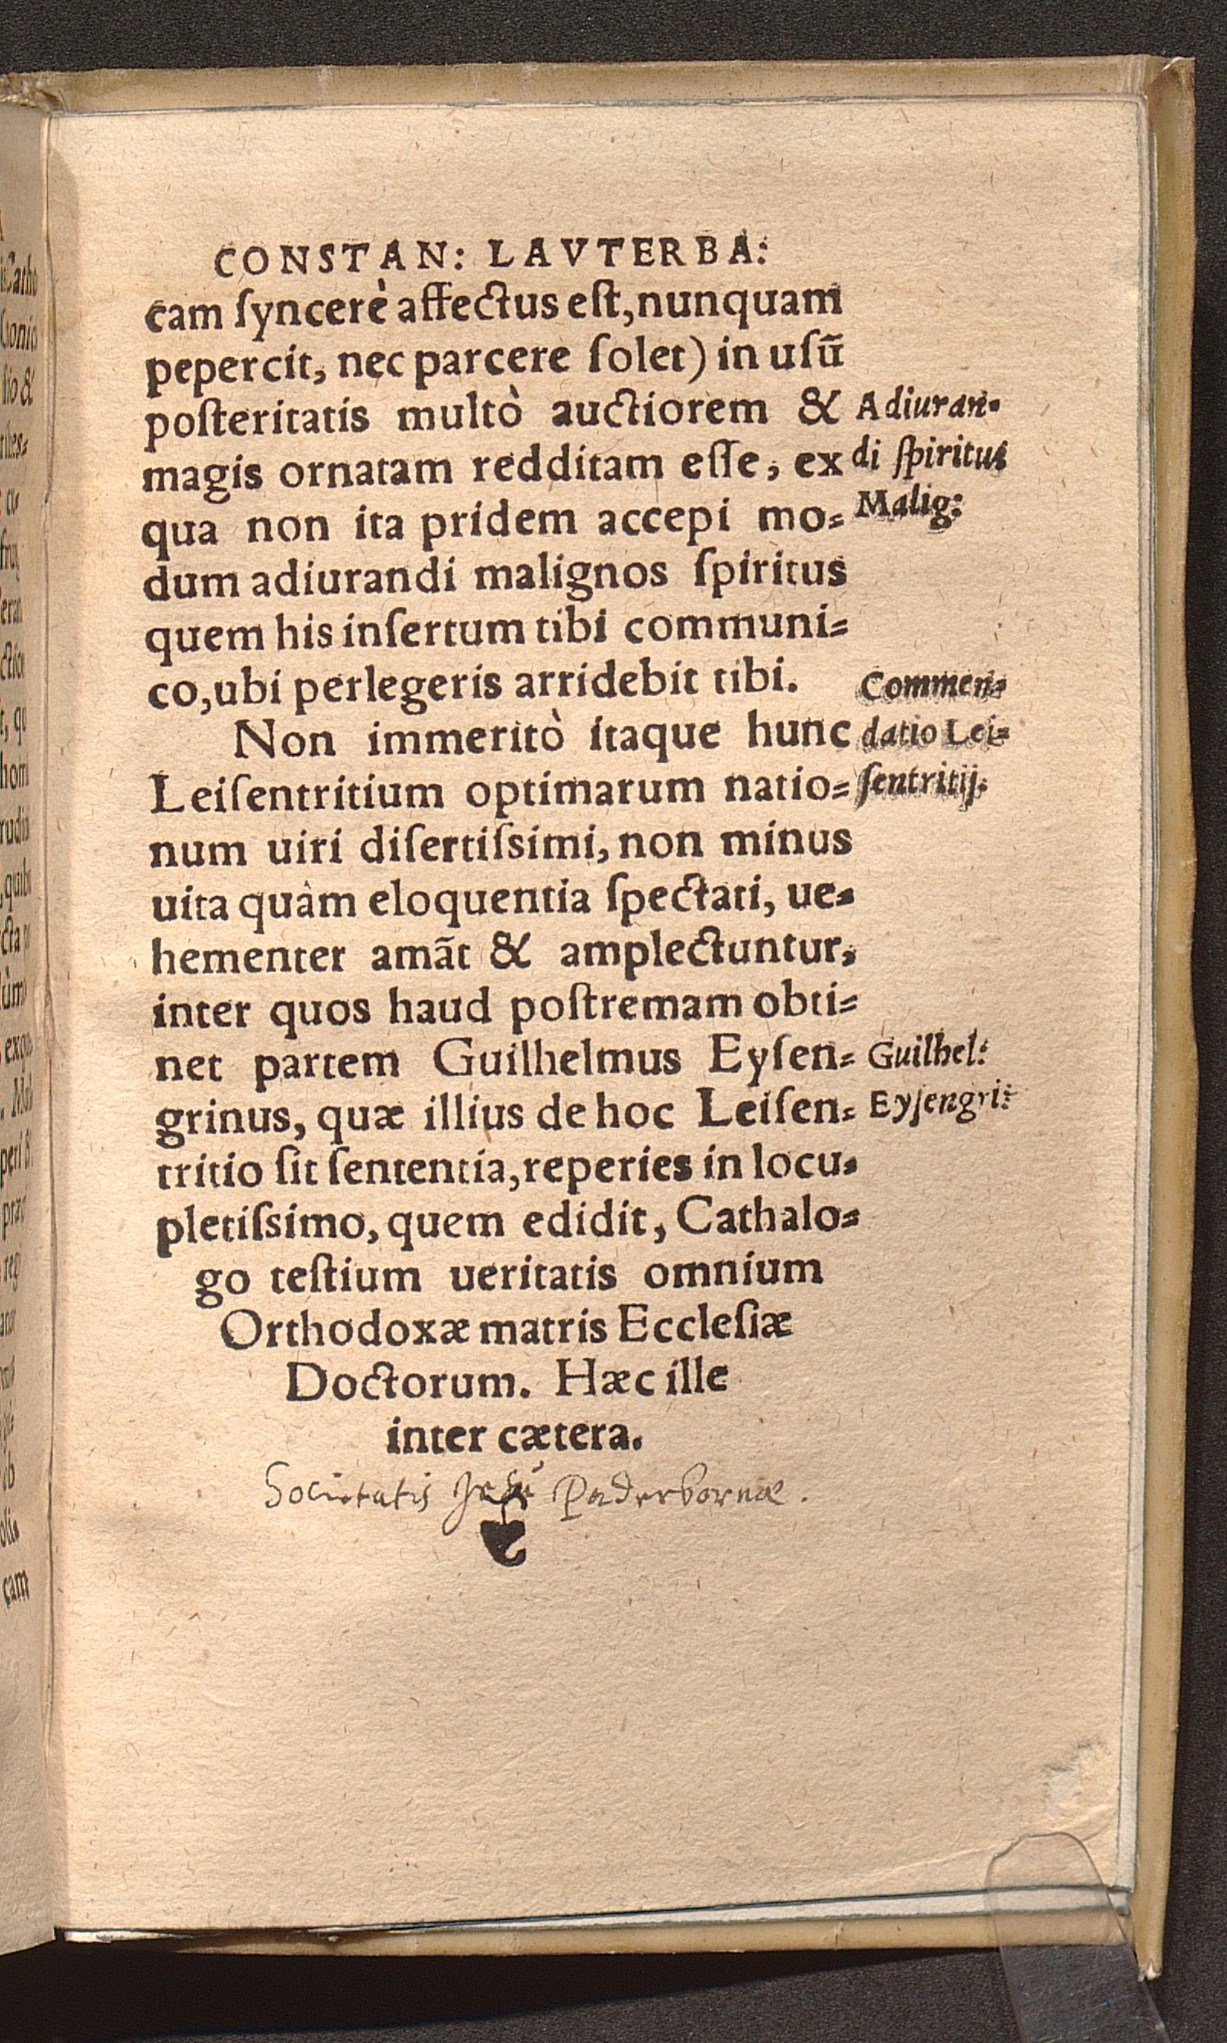 CONSTAN: LAVTERBA:
cam ſyncerè affectus eſt, nunquam
pepercit, nec parcere ſolet) in uſū
poſteritatis multò auctiorem &
magis ornatam redditam eſſe, ex
qua non ita pridem accepi mo=
dum adiurandi malignos ſpiritus
quem his inſertum tibi communi=
co, ubi perlegeris arridebit tibi.
Non immeritò itaque hunc
Leiſentritium optimarum natio=
num uiri diſertiſsimi, non minus
uita quàm eloquentia ſpectati, ue=
hementer amāt & amplectuntur,
inter quos haud poſtremam obti=
net partem Guilhelmus Eyſen=
grinus, quæ illius de hoc Leiſen=
tritio ſit ſententia, reperies in locu=
pletiſsimo, quem edidit, Cathalo=
go teſtium ueritatis omnium
Orthodoxæ matris Eccleſiæ
Doctorum. Hæc ille
inter cætera.
Adiuran=
di ſpiritus
Malig:
Commen=
datio Lei=
ſentritij.
Guilhel:
Eyſengri:
Societatis Jesu Paderbornæ.